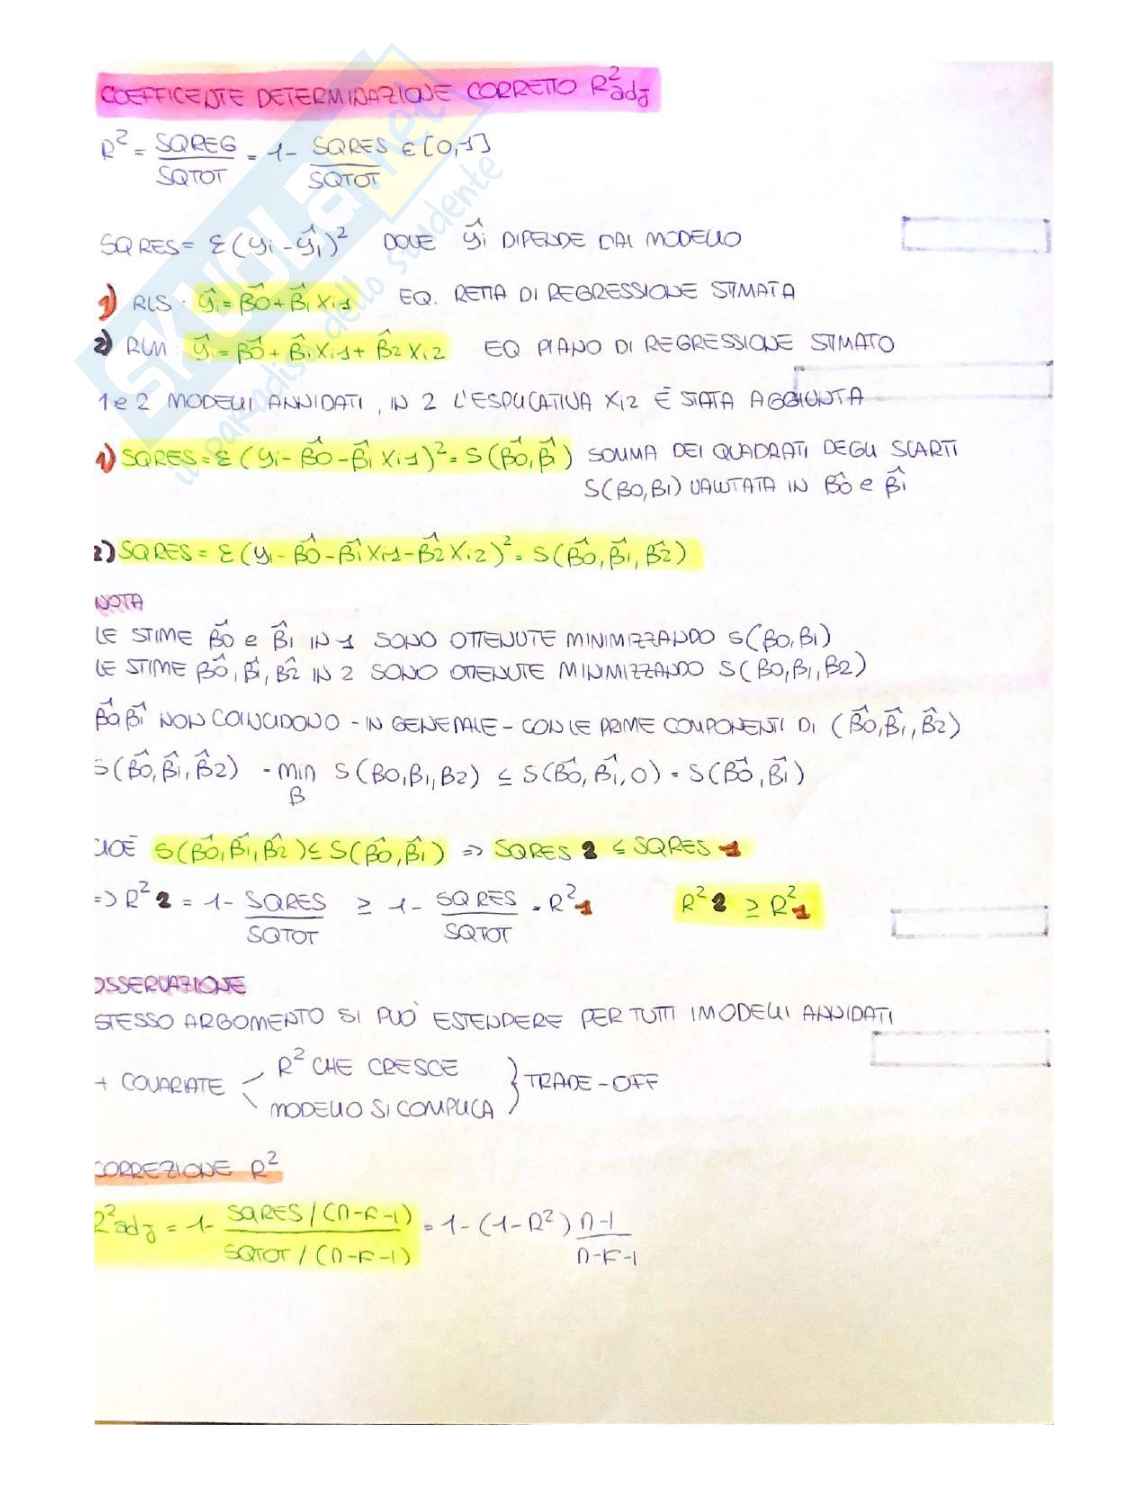 COEFFICENTE DETERMINAZIONE CORRETTO R²adj
R² = SQREG/SQTOT = 1 - SQRES/SQTOT ∈ [0,1]
SQRES = Σ(yi - ŷi)² DOVE ŷi DIPENDE DAL MODELLO
1) RLS : ŷi = β̂0 + β̂1 Xi1 EQ. RETTA DI REGRESSIONE STIMATA
2) RLM ŷi = β̂0 + β̂1 Xi1 + β̂2 Xi2 EQ PIANO DI REGRESSIONE STIMATO
1 e 2 MODELLI ANNIDATI, IN 2 L'ESPLICATIVA Xi2 È STATA AGGIUNTA
1) SQRES = Σ(yi - β̂0 - β̂1 Xi1)² = S(β̂0, β̂) SOMMA DEI QUADRATI DEGLI SCARTI
S(β0, β1) VALUTATA IN β̂0 e β̂1
2) SQRES = Σ(yi - β̂0 - β̂1 Xi1 - β̂2 Xi2)² = S(β̂0, β̂1, β̂2)
NOTA
LE STIME β̂0 e β̂1 IN 1 SONO OTTENUTE MINIMIZZANDO S(β0, β1)
LE STIME β̂0, β̂1, β̂2 IN 2 SONO OTTENUTE MINIMIZZANDO S(β0, β1, β2)
β̂0 β̂1 NON COINCIDONO - IN GENERALE - CON LE PRIME COMPONENTI DI (β̂0, β̂1, β̂2)
S(β̂0, β̂1, β̂2) = min β S(β0, β1, β2) ≤ S(β̂0, β̂1, 0) = S(β̂0, β̂1)
CIOÈ S(β̂0, β̂1, β̂2) ≤ S(β̂0, β̂1) => SQRES 2 ≤ SQRES 1
=> R² 2 = 1 - SQRES/SQTOT ≥ 1 - SQRES/SQTOT = R² 1 R² 2 ≥ R² 1
OSSERVAZIONE
STESSO ARGOMENTO SI PUÒ ESTENDERE PER TUTTI I MODELLI ANNIDATI
+ COVARIATE < R² CHE CRESCE
MODELLO SI COMPLICA } TRADE-OFF
CORREZIONE R²
R²adj = 1 - SQRES/(n-k-1) / SQTOT/(n-k-1) = 1 - (1-R²) n-1/n-k-1
SKUOLA.net
il paradiso dello studente